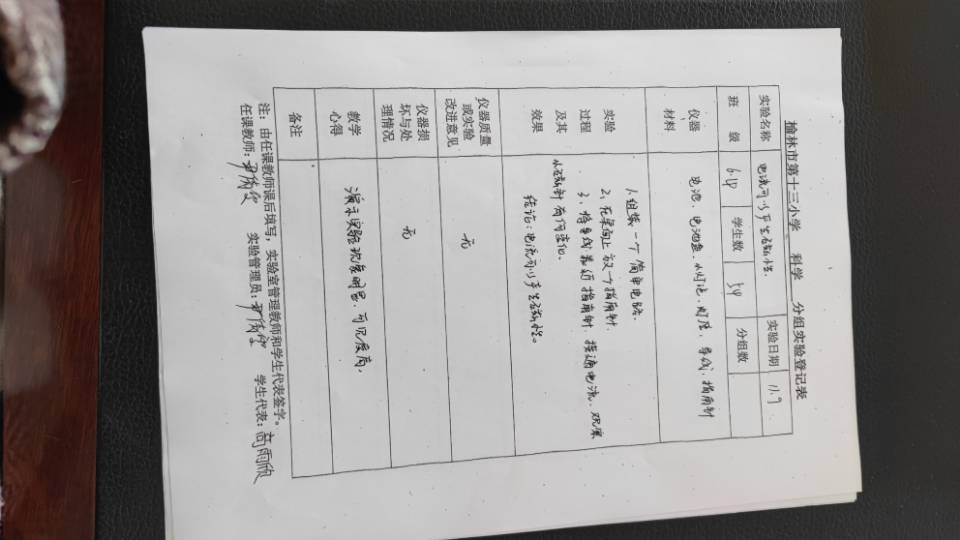 榆林市第十三小学 科学 分组实验登记表
实验名称 电流可以产生磁性. 实验日期 11.9
班 级 6.4 学生数 54 分组数
仪器材料 电池、电池盒、小灯泡、灯座、导线、指南针
实验过程及其效果
1、组装一个简单电路.
2、在桌面上放一个指南针.
3、将导线靠近指南针,接通电流,观察
磁针有何变化.
结论:电流可以产生磁性。
仪器质量或实验改进意见 无
仪器损坏与处理情况 无
教学心得 演示实验现象明显,可见度高.
备注
注:由任课教师课后填写,实验室管理教师和学生代表签字。
任课教师: 实验管理员: 学生代表:高雨欣